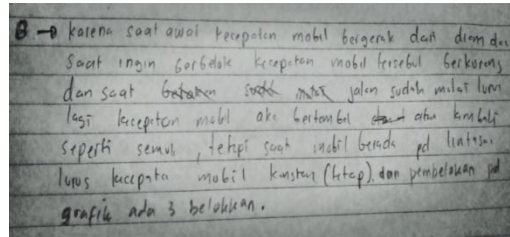 B → karena saat awal kecepatan mobil bergerak dari diam dan
saat ingin berbelok kecepatan mobil tersebut berkurang
dan saat jalan sudah mulai lurus
lagi kecepatan mobil aka bertambal atau kembali
seperti semula, tetapi saat mobil berada pd lintasan
lurus kecepata mobil konstan (tetap). dan pembelokan pd
grafik ada 3 belokkan.